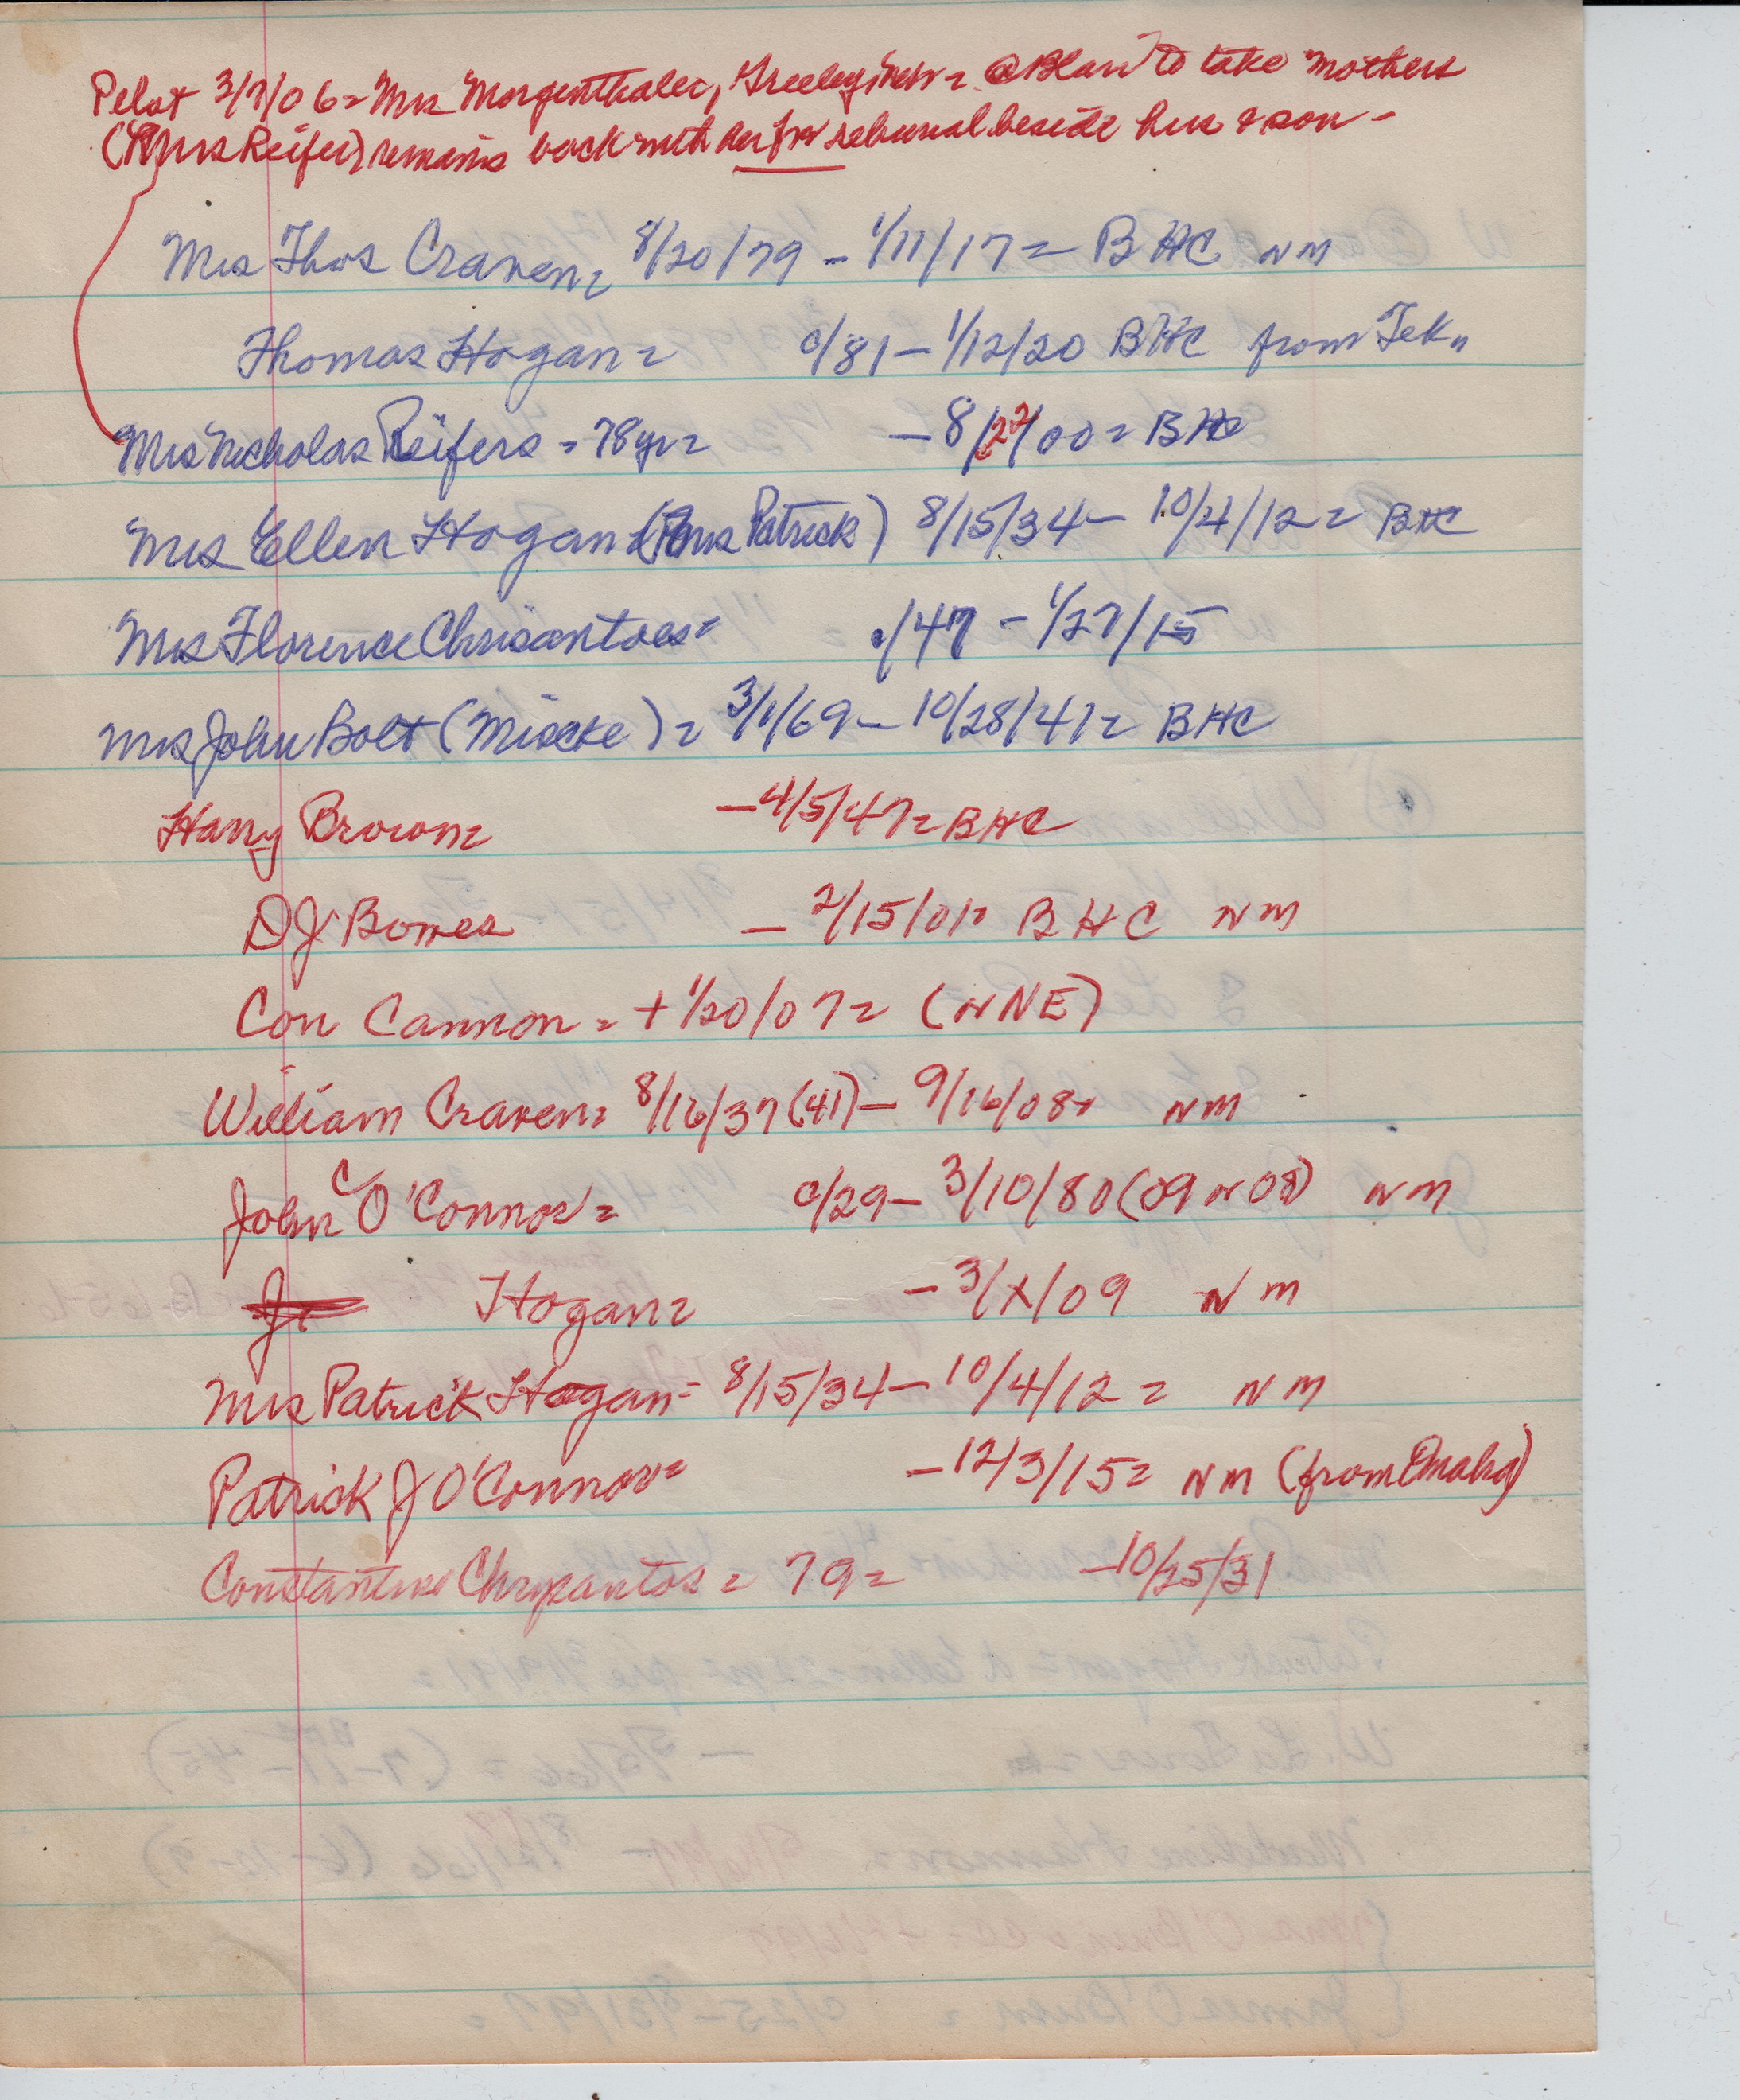 Pelot 3/7/06 = Mrs Morgenthaler, Greeley, = @ Blair to take mothers
(Mrs Reifers) remains back with her for reburial beside hus & son -
Mrs Thos Craven = 8/20/79 - 1/11/17 = BHC NM
Thomas Hogan = c/81 - 1/12/20 BHC from Tek"
Mrs Nicholas Reifers = 78yr = - 8/22/00 = BHC
Mrs Ellen Hogan (Mrs Patrick) 8/15/34 - 10/4/12 = BHC
Mrs Florence Chrisantoes = c/47 - 1/27/15
Mrs John Bolt (Miscke) = 3/1/69 - 10/28/41 = BHC
Harry Brown = - 4/5/47 = BHC
DJ Bowes - 2/15/01 = BHC NM
Con Cannon = + 1/20/07 = (NNE)
William Craven = 8/16/37 (41) - 9/16/08 = NM
John C O'Connor = c/29 - 3/10/80 (09 N 08) NM
Hogan = - 3/X/09 NM
Mrs Patrick Hogan = 8/15/34 - 10/4/12 = NM
Patrick J O'Connor = - 12/3/15 = NM (from Omaha)
Constantine Chrysantos = 79 = - 10/25/31